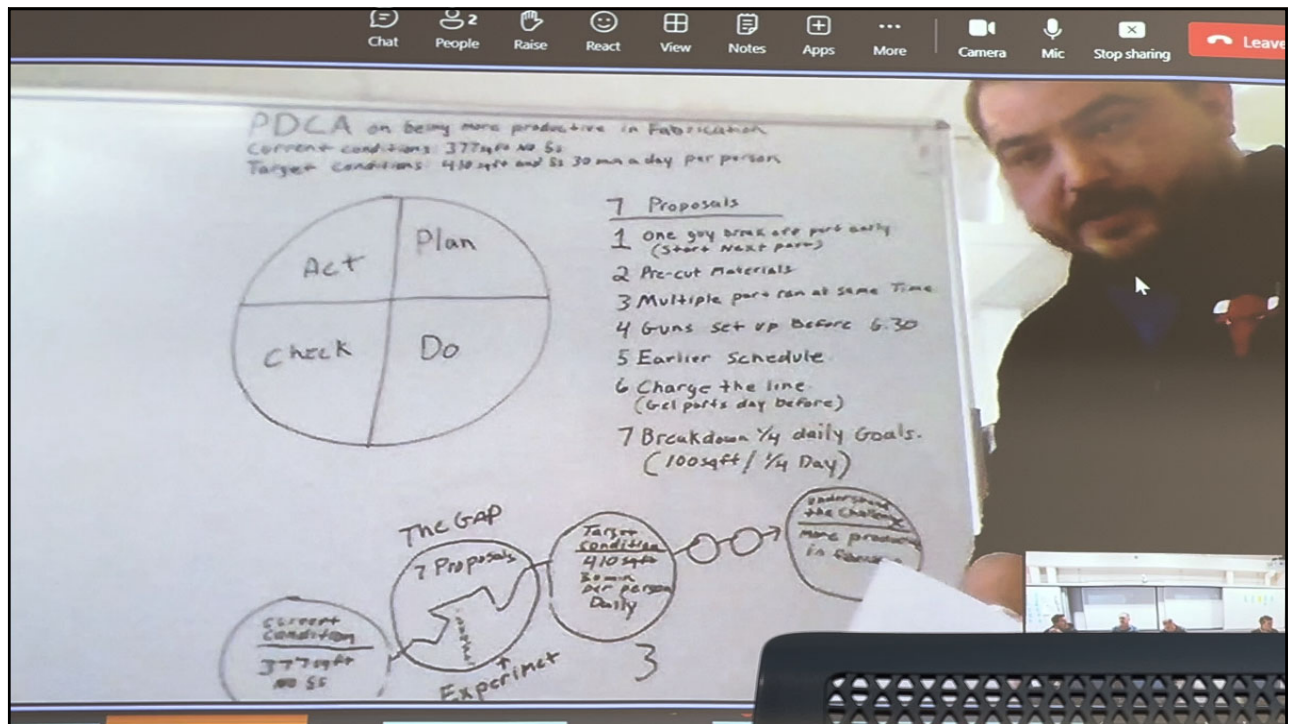 Chat
People 2
Raise
React
View
Notes
Apps
More
Camera
Mic
Stop sharing
Leave
PDCA on being more productive in Fabrication
Current conditions: 377 sqft NO 5s
Target Conditions: 410 sqft and 5s 30 min a day per person
Act
Plan
Check
Do
7 Proposals
1 One guy break are part early
(Start Next part)
2 Pre-cut Materials
3 Multiple part ran at same Time
4 Guns set up Before 6:30
5 Earlier Schedule
6 Charge the line
(Get parts day before)
7 Breakdown 1/4 daily Goals.
(100sqft / 1/4 Day)
The GAP
7 Proposals
Experimet
Target
condition
410 sqft
30 min
per person
Daily
3
understand
the challenge
more
in
Current
condition
377 sqft
NO 5s